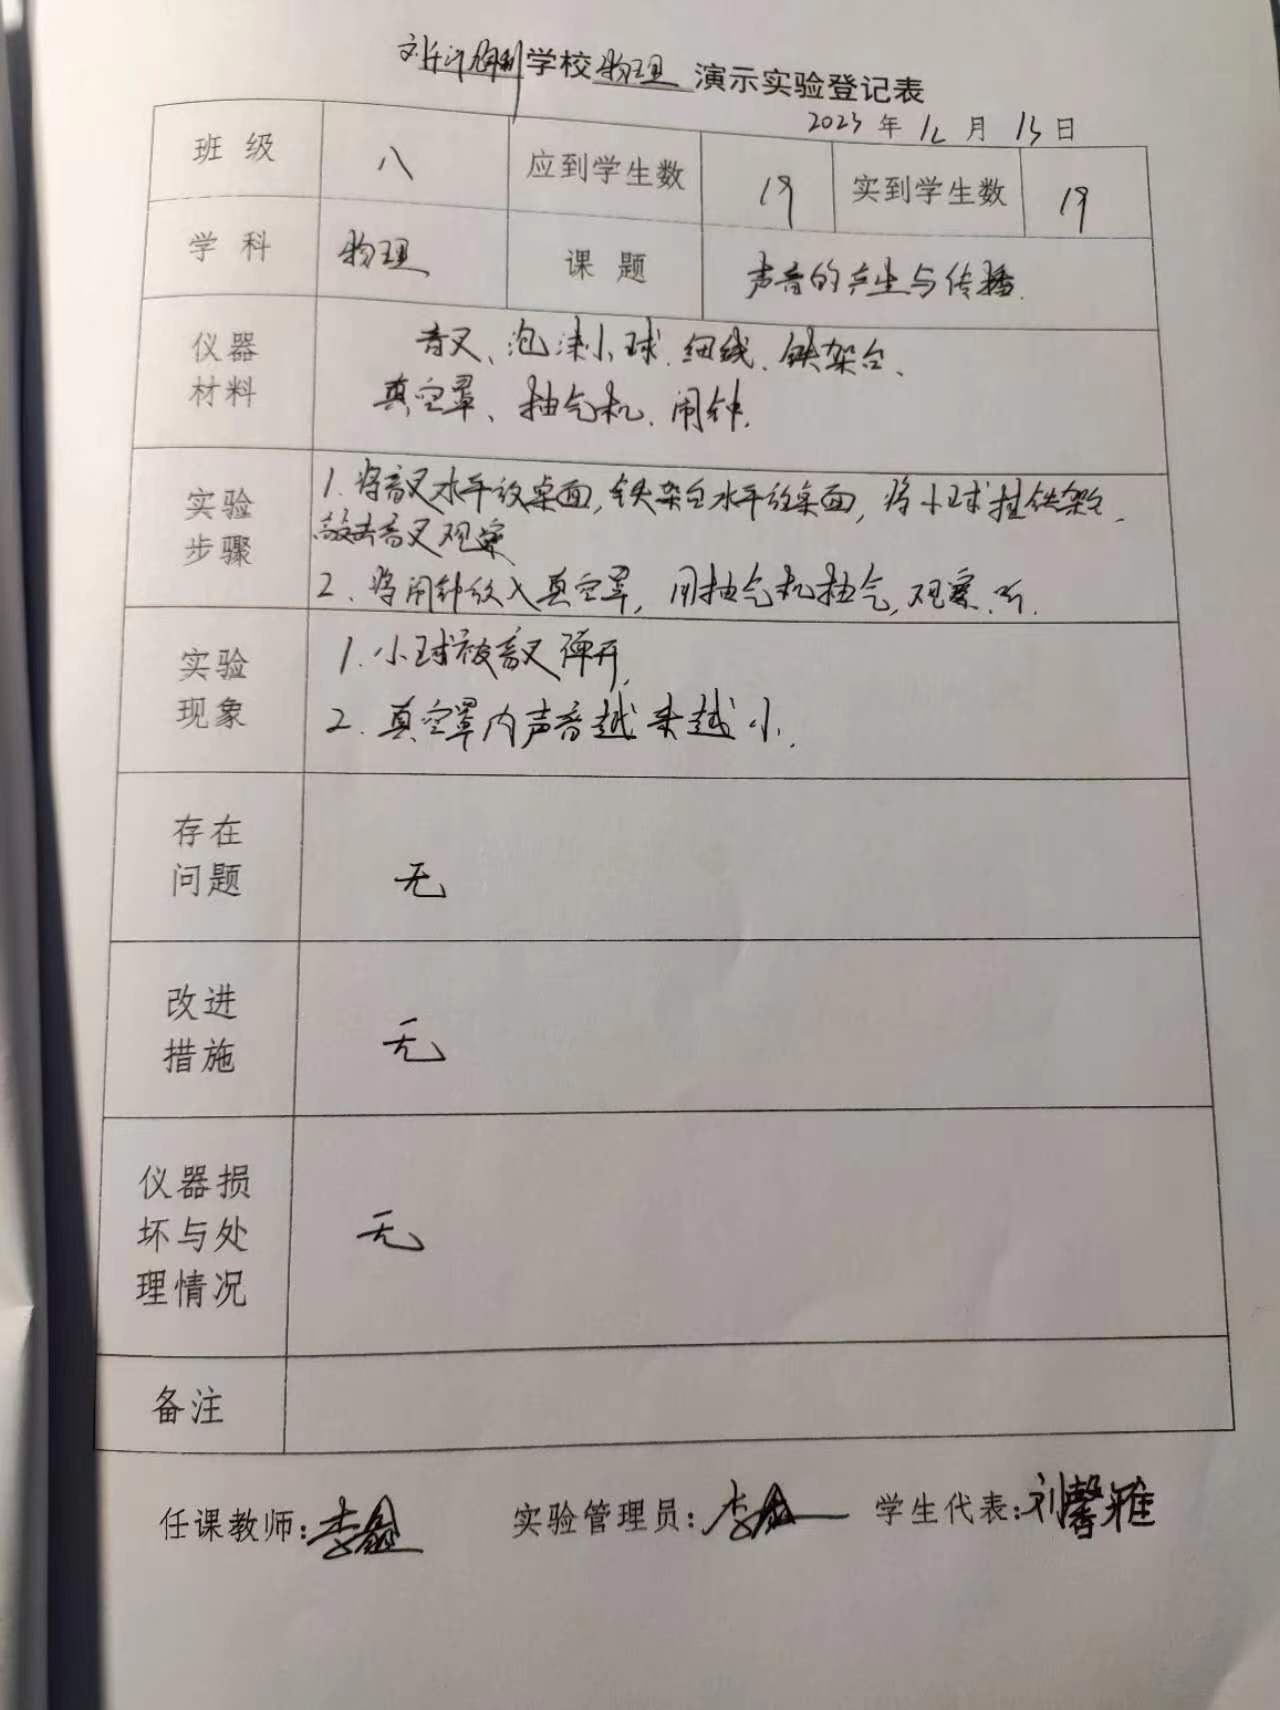 学校 物理 演示实验登记表
2023 年 12 月 13 日
班 级 八 应到学生数 19 实到学生数 19
学 科 物理 课 题 声音的产生与传播.
仪器
材料
音叉、泡沫小球.细线.铁架台、
真空罩、抽气机.闹钟.
实验
步骤
1.将音叉水平放桌面,铁架台水平放桌面,将小球挂铁架台.
敲击音叉观察
2.将闹钟放入真空罩,用抽气机抽气,观察.听.
实验
现象
1.小球被音叉弹开,
2.真空罩内声音越来越小.
存在
问题
无
改进
措施
无
仪器损
坏与处
理情况
无
备注
任课教师: 实验管理员: 学生代表:刘馨雅